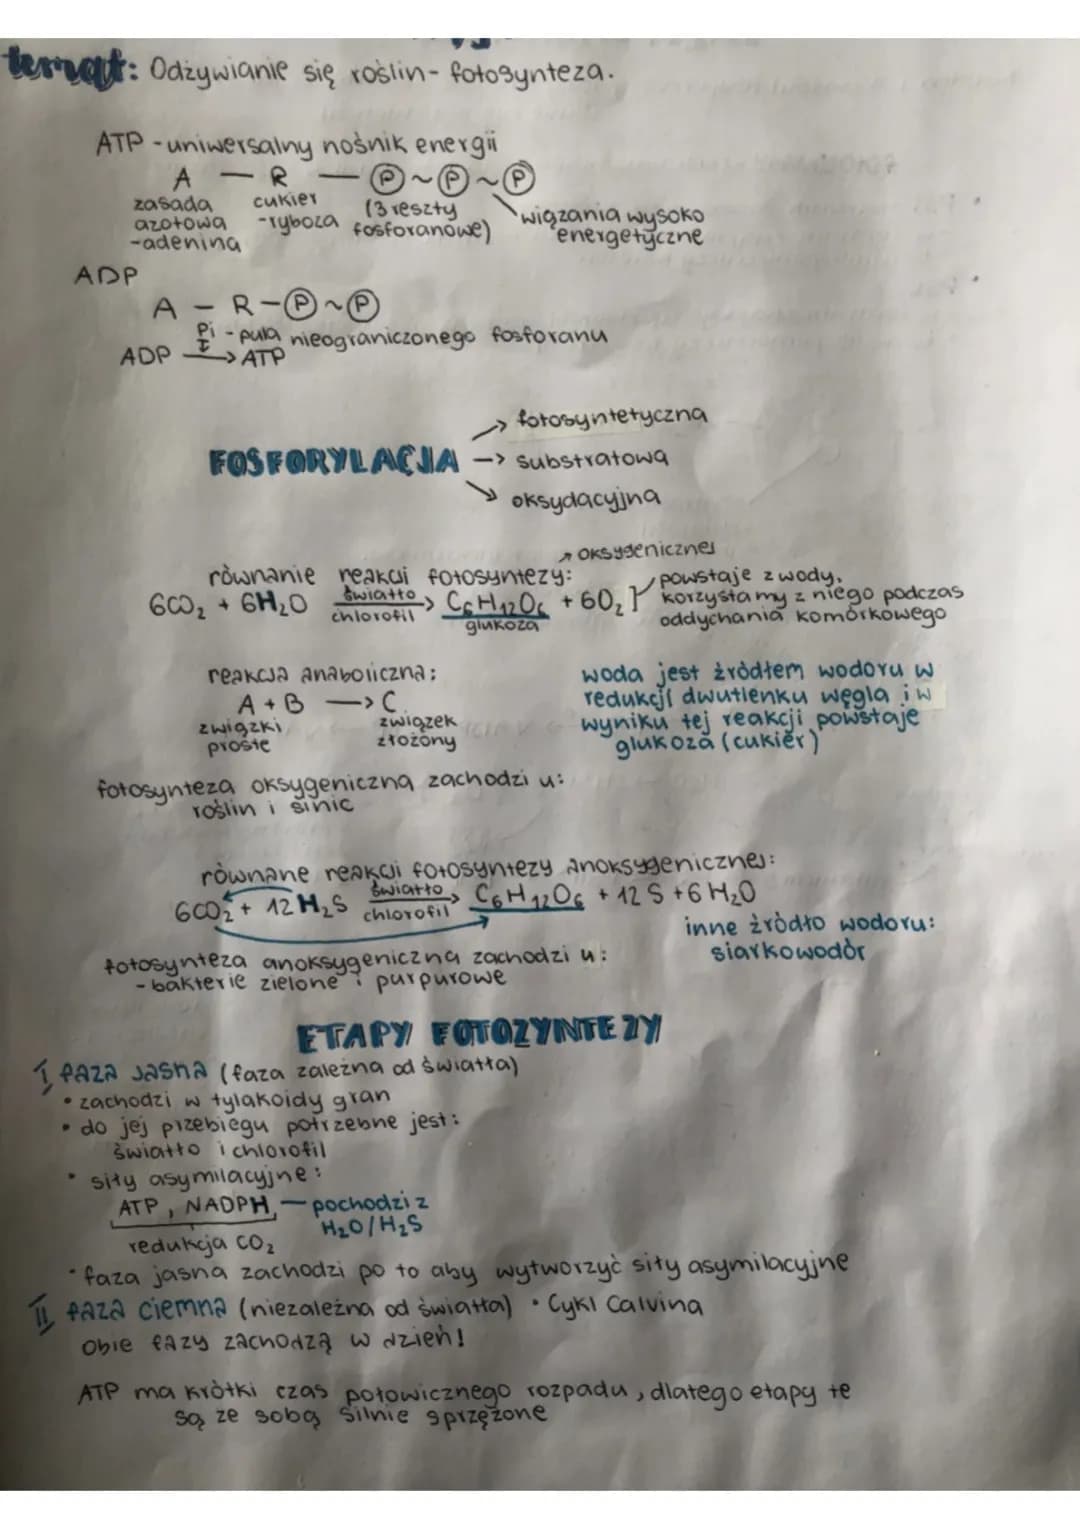 temat: Odżywianie się roślin - fotosynteza.
ATP - uniwersalny nośnik energii
A — R — (P) ~ (P) ~ (P)
zasada azotowa -adenina
cukier -ryboza
(3 reszty fosforanowe)
wiązania wysoko energetyczne
ADP
A - R - (P) ~ (P)
Pi - pula nieograniczonego fosforanu
ADP → ATP
→ fotosyntetyczna
FOSFORYLACJA → substratowa
→ oksydacyjna
równanie reakcji fotosyntezy: ↗ oksygenicznej
6CO₂ + 6H₂O światło/chlorofil → C₆H₁₂O₆ + 6O₂ }
glukoza
powstaje z wody,
korzystamy z niego podczas
oddychania komórkowego
reakcja anaboliczna:
A + B → C
związki proste
związek złożony
woda jest źródłem wodoru w
redukcji dwutlenku węgla i w
wyniku tej reakcji powstaje
glukoza (cukier)
fotosynteza oksygeniczna zachodzi u:
roślin i sinic
równane reakcji fotosyntezy anoksygenicznej:
6CO₂ + 12H₂S światło/chlorofil → C₆H₁₂O₆ + 12S + 6H₂O
inne źródło wodoru:
siarkowodór
fotosynteza anoksygeniczna zachodzi u:
- bakterie zielone i purpurowe
ETAPY FOTOZYNTEZY
I faza jasna (faza zależna od światła)
• zachodzi w tylakoidy gran
• do jej przebiegu potrzebne jest:
światło i chlorofil
• siły asymilacyjne:
ATP, NADPH, — pochodzi z
H₂O/H₂S
redukcja CO₂
• faza jasna zachodzi po to aby wytworzyć siły asymilacyjne
II faza ciemna (niezależna od światła) • Cykl Calvina
Obie fazy zachodzą w dzień!
ATP ma krótki czas połowicznego rozpadu, dlatego etapy te
są ze sobą silnie sprzężone